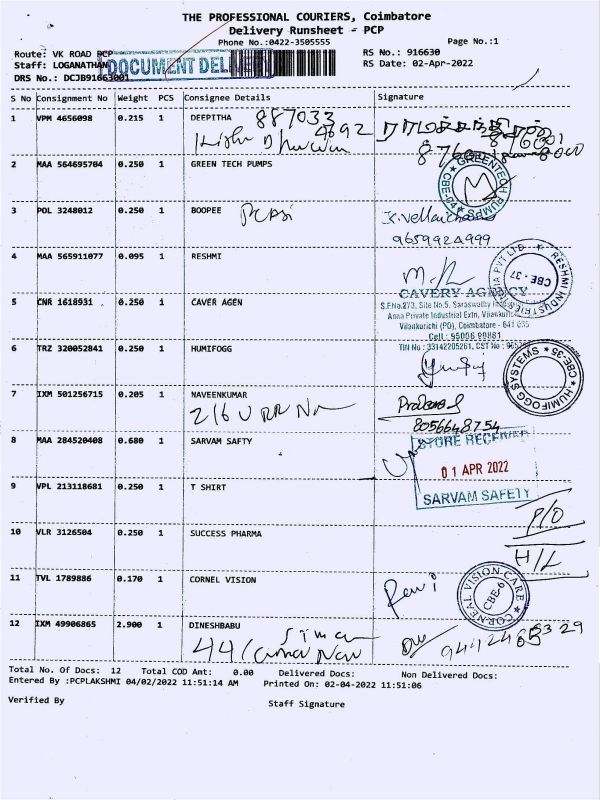 THE PROFESSIONAL COURIERS, Coimbatore
Delivery Runsheet - PCP
Phone No.:0422-3505555
Page No.:1
Route: VK ROAD PCP
RS No.: 916630
Staff: LOGANATHAN
DOCUMENT DEL
RS Date: 02-Apr-2022
DRS No.: DCJB91663001
S No Consignment No Weight PCS Consignee Details Signature
1 VPM 4656098 0.215 1 DEEPITHA 887033
4692
2 MAA 564695704 0.250 1 GREEN TECH PUMPS
GREENTECH PUMPS CBE-04
3 POL 3248012 0.250 1 BOOPEE
9659924999
4 MAA 565911077 0.095 1 RESHMI
RESHMI INDUSTRIES INDIA PVT LTD CBE - 37
5 CNR 1618931 0.250 1 CAVER AGEN
CAVERY AGENCY
S.F.No.273, Site No.5, Saraswathy
Anna Private Industrial Extn, Vilankuri
Vilankurichi (PO), Coimbatore - 641 035
Cell : 95006 99881
TIN No : 33142205261, CST No :
6 TRZ 320052841 0.250 1 HUMIFOGG
HUMIFOGG SYSTEMS CBE-35
7 IXM 501256715 0.205 1 NAVEENKUMAR
8056648754
8 MAA 284520408 0.680 1 SARVAM SAFTY
STORE RECEIVED
01 APR 2022
SARVAM SAFETY
9 VPL 213118681 0.250 1 T SHIRT
P/O
10 VLR 3126504 0.250 1 SUCCESS PHARMA
H/L
11 TVL 1789886 0.170 1 CORNEL VISION
Ravi
CORNEAL VISION CARE CBE-6
12 IXM 49906865 2.900 1 DINESHBABU
44/
Total No. Of Docs: 12 Total COD Amt: 0.00 Delivered Docs: Non Delivered Docs:
Entered By :PCPLAKSHMI 04/02/2022 11:51:14 AM Printed On: 02-04-2022 11:51:06
Verified By
Staff Signature